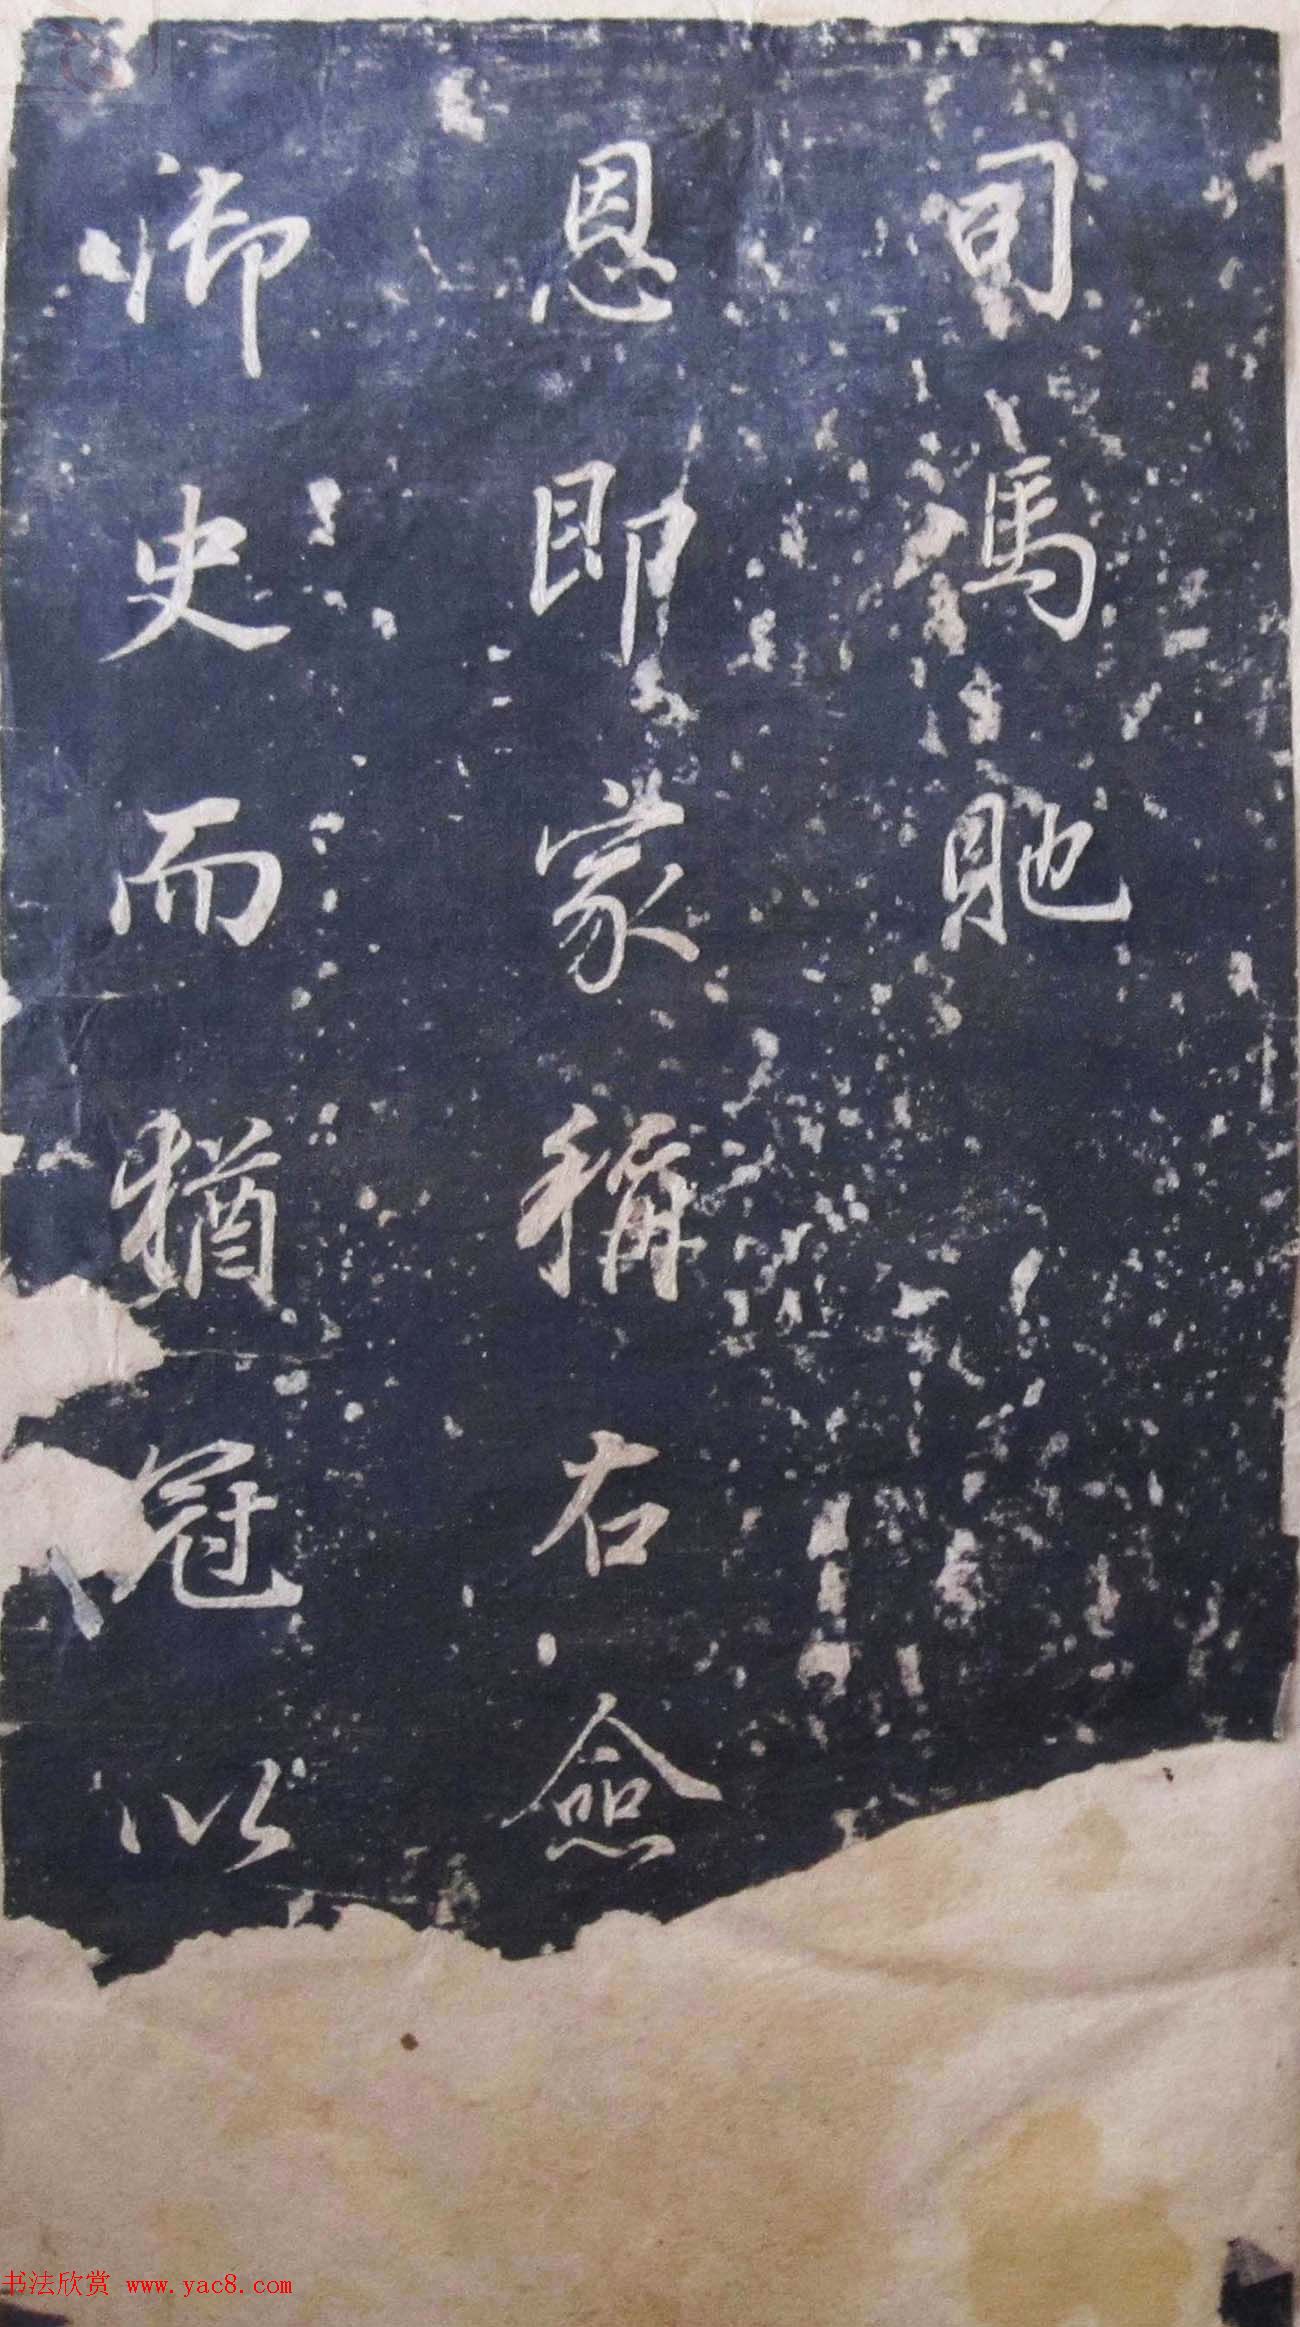 司馮馳
恩即家稱右僉
御史而猶冠以
书法欣赏 www.yac8.com